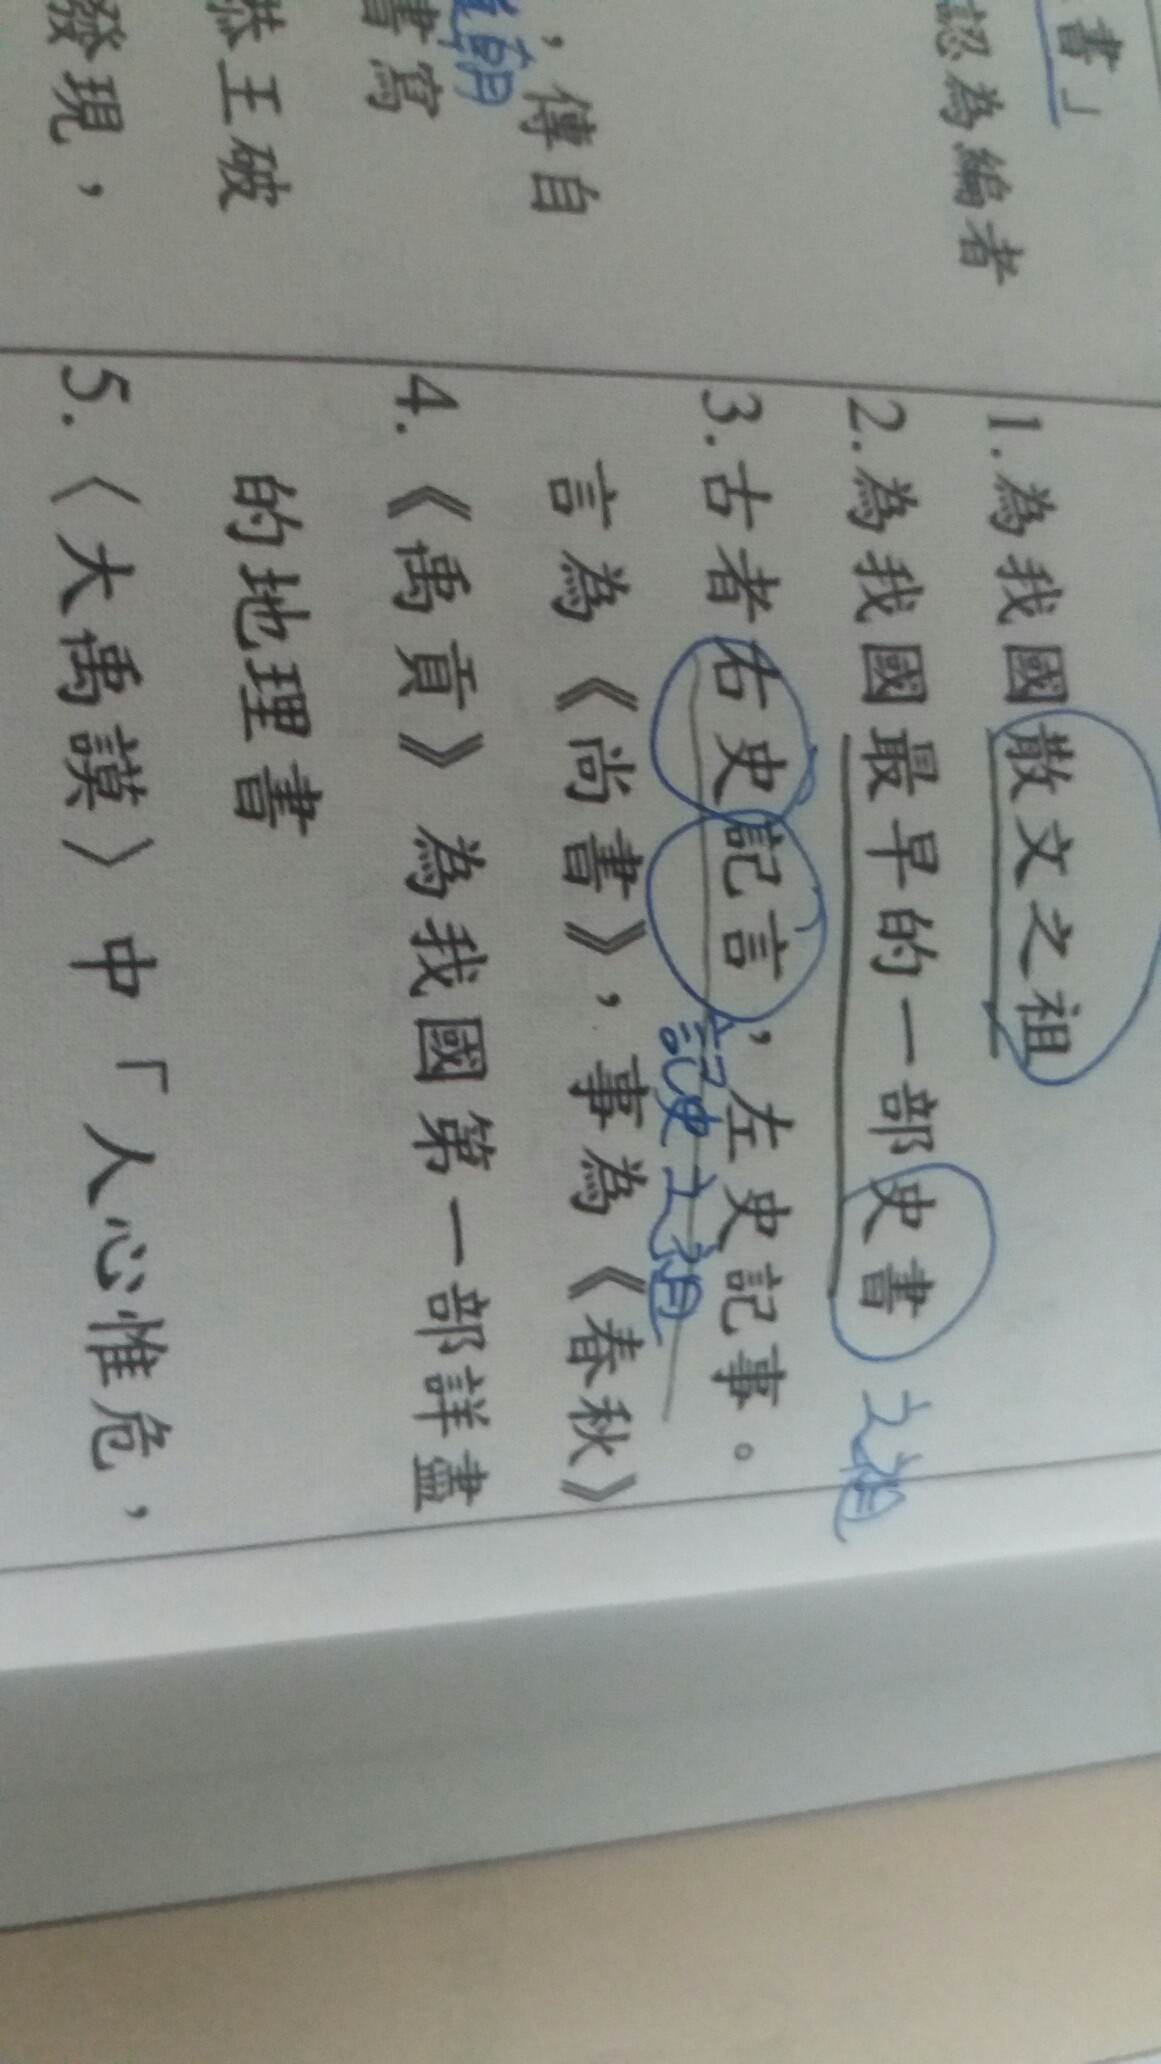 書」
認為編者
，傳自
書寫
恭王破
發現，
1.為我國散文之祖
2.為我國最早的一部史書 之祖
3.古者右史記言，左史記事。
記史之祖
言為《尚書》，事為《春秋》
4.《禹貢》為我國第一部詳盡
的地理書
5.〈大禹謨〉中「人心惟危，